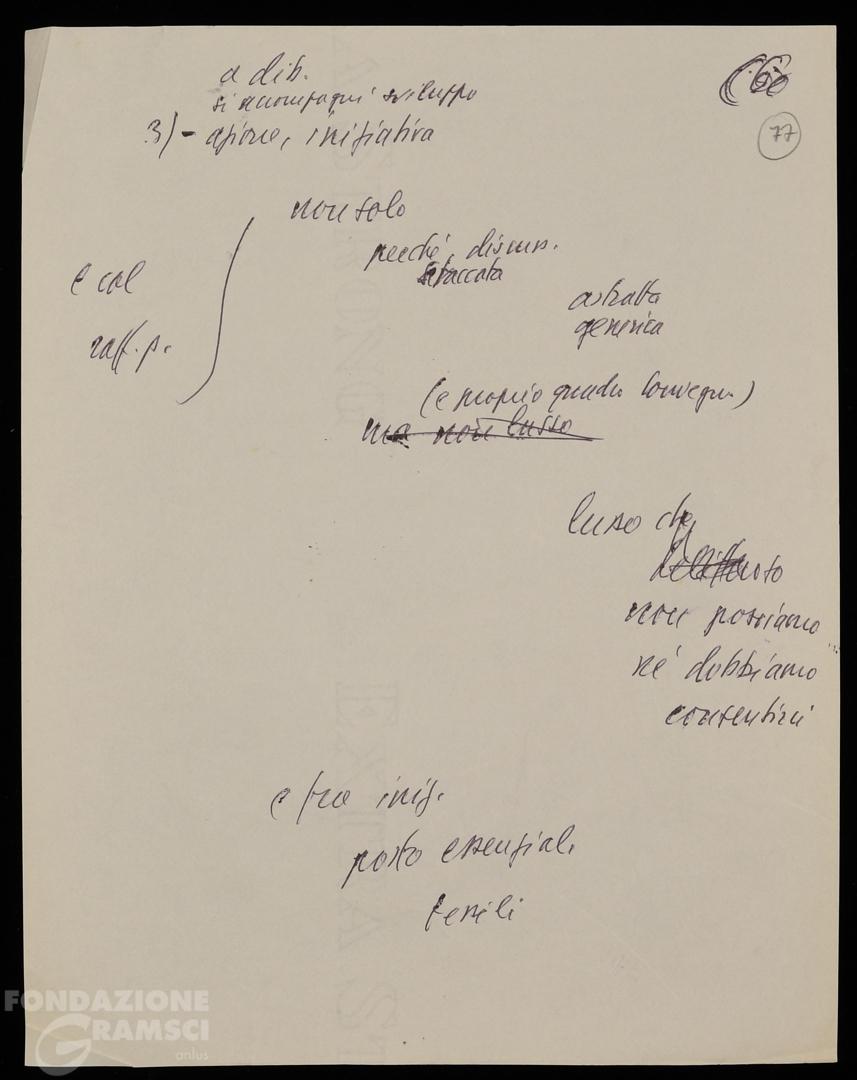 a dib.
si accompagni sviluppo
3) - azione, iniziativa
77
non solo
perché discuss.
staccata
e col
raff. p.
astratta
generica
(e proprio quadro convegn.)
ma non lusso
lusso che
non possiamo
né dobbiamo
consentirci
e fra iniz.
posto essenzial.
tessili
FONDAZIONE
GRAMSCI
onlus